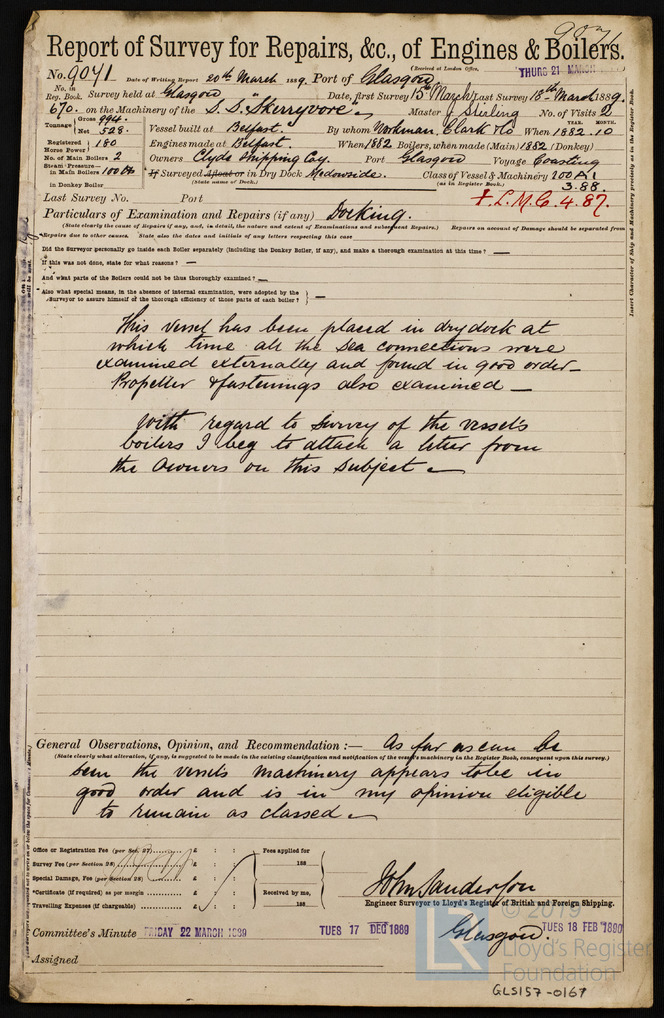 Report of Survey for Repairs, &c., of Engines & Boilers.
(Received at London Office,
No. 9041 Date of Writing Report 20th March 1889. Port of Glasgow THURS 21 MARCH
No. in Reg. Book. Survey held at Glasgow Date, first Survey 15th March Last Survey 18th March 1889.
670. on the Machinery of the S.S. "Skerryvore" Master J Stirling No. of Visits 2
Tonnage Gross 994. Net 528. Vessel built at Belfast. By whom Workman, Clark & Co When 1882.10 YEAR. MONTH.
Registered Horse Power 180 Engines made at Belfast. When 1882 Boilers, when made (Main) 1882 (Donkey)
No. of Main Boilers 2 Owners Clyde Shipping Coy. Port Glasgow Voyage Coasting
Steam Pressure in Main Boilers 100 lbs If Surveyed Afloat or in Dry Dock Meadowside. Class of Vessel & Machinery 100A1
in Donkey Boiler (State name of Dock.) (as in Register Book.) 3.88.
Last Survey No. Port + L.M.C. 4.87.
Particulars of Examination and Repairs (if any) Docking.
(State clearly the cause of Repairs if any, and, in detail, the nature and extent of Examinations and subsequent Repairs.) Repairs on account of Damage should be separated from
Repairs due to other causes. State also the dates and initials of any letters respecting this case
Did the Surveyor personally go inside each Boiler separately (including the Donkey Boiler, if any), and make a thorough examination at this time? —
If this was not done, state for what reasons? —
And what parts of the Boilers could not be thus thoroughly examined? —
Also what special means, in the absence of internal examination, were adopted by the
Surveyor to assure himself of the thorough efficiency of those parts of each boiler? —
This vessel has been placed in dry dock at
which time all the sea connections were
examined externally and found in good order—
Propeller & fastenings also examined —
With regard to Survey of the vessels
boilers I beg to attach a letter from
the Owners on this subject —
Insert Character of Ship and Machinery precisely as in the Register Book.
General Observations, Opinion, and Recommendation :— As far as can be
(State clearly what alteration, if any, is suggested to be made in the existing classification and notification of the vessel's machinery in the Register Book, consequent upon this survey.)
seen the vessels machinery appears to be in
good order and is in my opinion eligible
to remain as classed —
Office or Registration Fee (per Sec. 27) £ : : Fees applied for
Survey Fee (per Section 28) £ : : 188
Special Damage, Fee (per Section 28) £ : :
*Certificate (if required) as per margin £ : : Received by me,
Travelling Expenses (if chargeable) £ : : 188
John Sanderson
Engineer Surveyor to Lloyd's Register of British and Foreign Shipping.
Committee's Minute FRIDAY 22 MARCH 1889 TUES 17 DEC 1889 Glasgow. TUES 18 FEB 1890
Assigned
© 2019
Lloyd's Register
Foundation
GLS157-0167